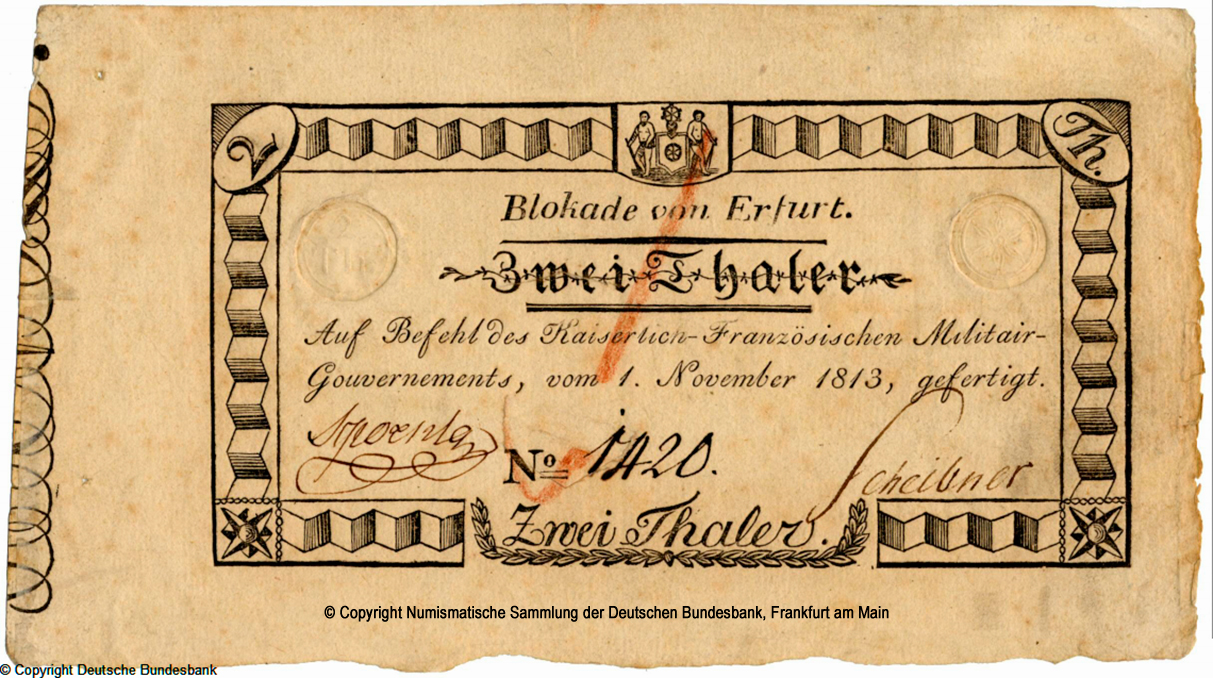 2
Th.
Blokade von Erfurt.
Zwei Thaler
Auf Befehl des Kaiserlich-Französischen Militair-
Gouvernements, vom 1. November 1813, gefertigt.
No 1420.
Scheibner
Zwei Thaler.
© Copyright Numismatische Sammlung der Deutschen Bundesbank, Frankfurt am Main
© Copyright Deutsche Bundesbank